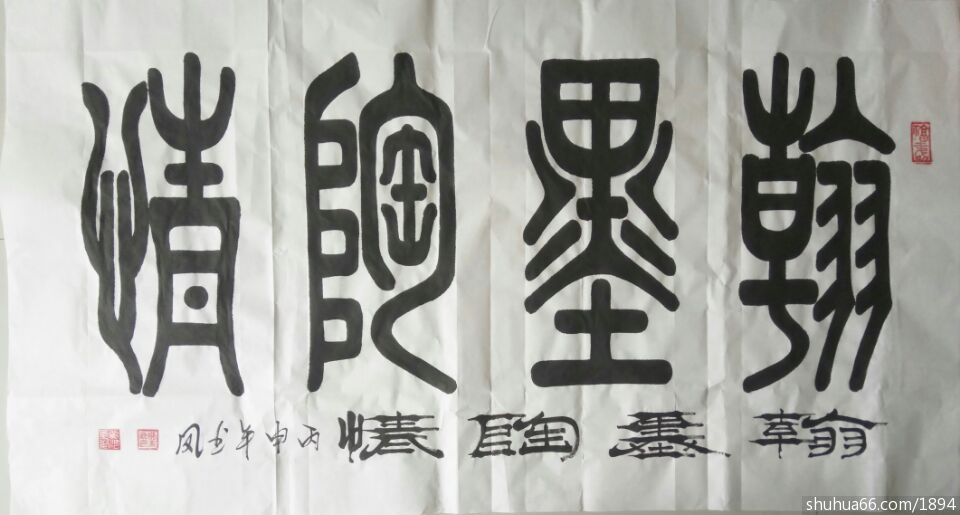 翰墨陶情
翰墨陶情 丙申年
shuhua66.com/1894